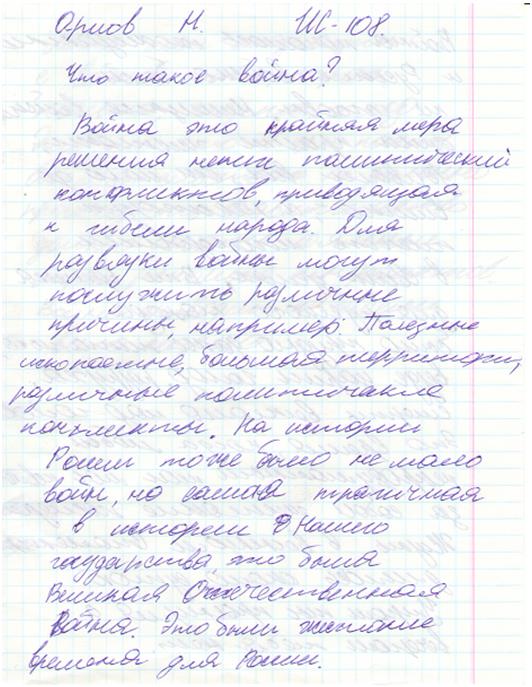 Орлов Н. ИС-108.
Что такое война?
Война это крайняя мера
решения неких политический
конфликтов, приводящая
к гибели народа. Для
развязки войны могут
послужить различные
причины, например: Полезные
ископаемые, большая территори,
различные политичиские
конфликты. На истории
России тоже было не мало
войн, но самая трагичная
в истории Нашего
государства, это была
Великая Отечественная
Война. Это были жестокие
времена для России.